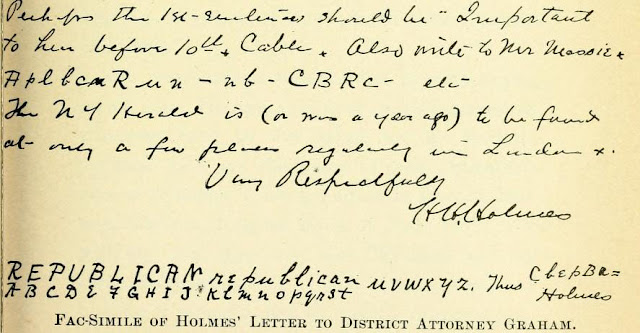 Perhaps the 1st sentence should be "Important
to hear before 10th. Cable. Also write to Mr Massie.
AplbcnRun - nb - CBRc - etc
The N Y Herald is (or was a year ago) to be found
at only a few places regularly in London +.
Very Respectfully
H H Holmes
REPUBLICAN republican uvwxyz. Thus CbepBa=
ABCDEFGHIJ klmnopqrst Holmes
FAC-SIMILE OF HOLMES' LETTER TO DISTRICT ATTORNEY GRAHAM.